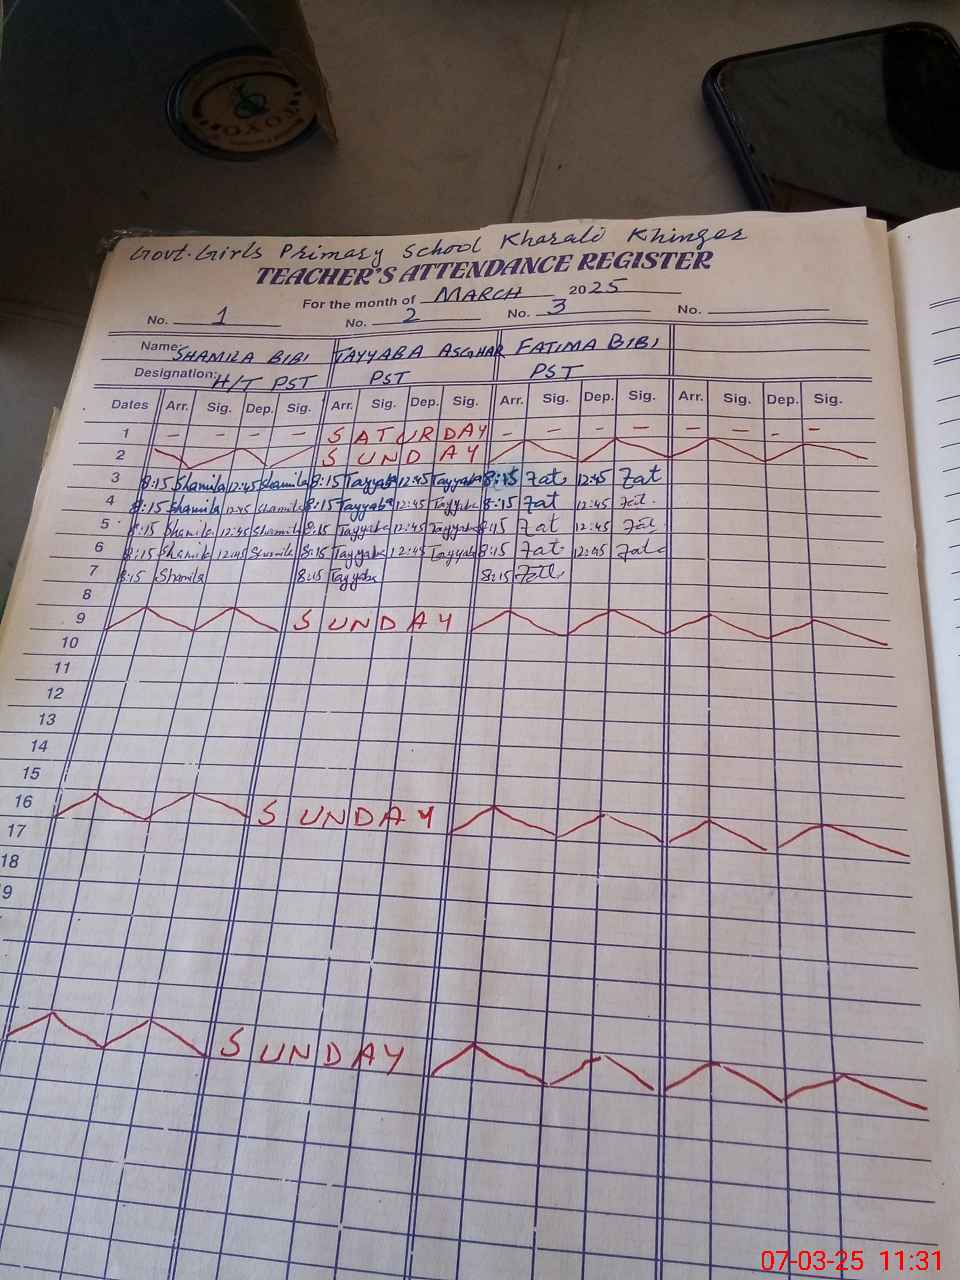 TOYO
Govt. Girls Primary School Kharali Khinger
TEACHER'S ATTENDANCE REGISTER
For the month of MARCH 2025
No. 1 No. 2 No. 3 No.
Name: SHAMILA BIBI TAYYABA ASGHAR FATIMA BIBI
Designation: H/T PST PST PST
Dates Arr. Sig. Dep. Sig. Arr. Sig. Dep. Sig. Arr. Sig. Dep. Sig. Arr. Sig. Dep. Sig.
1 - - - - SATURDAY - - - - - - - -
2 SUNDAY
3 8:15 Shamila 12:45 Shamila 8:15 Tayyaba 12:45 Tayyaba 8:15 Fat 12:45 Fat
4 8:15 Shamila 12:45 Shamila 8:15 Tayyaba 12:45 Tayyaba 8:15 Fat 12:45 Fat
5 8:15 Shamila 12:45 Shamila 8:15 Tayyaba 12:45 Tayyaba 8:15 Fat 12:45 Fat
6 8:15 Shamila 12:45 Shamila 8:15 Tayyaba 12:45 Tayyaba 8:15 Fat 12:45 Fat
7 8:15 Shamila 8:15 Tayyaba 8:15 Fat
8
9 SUNDAY
10
11
12
13
14
15
16 SUNDAY
17
18
9
SUNDAY
07-03-25 11:31